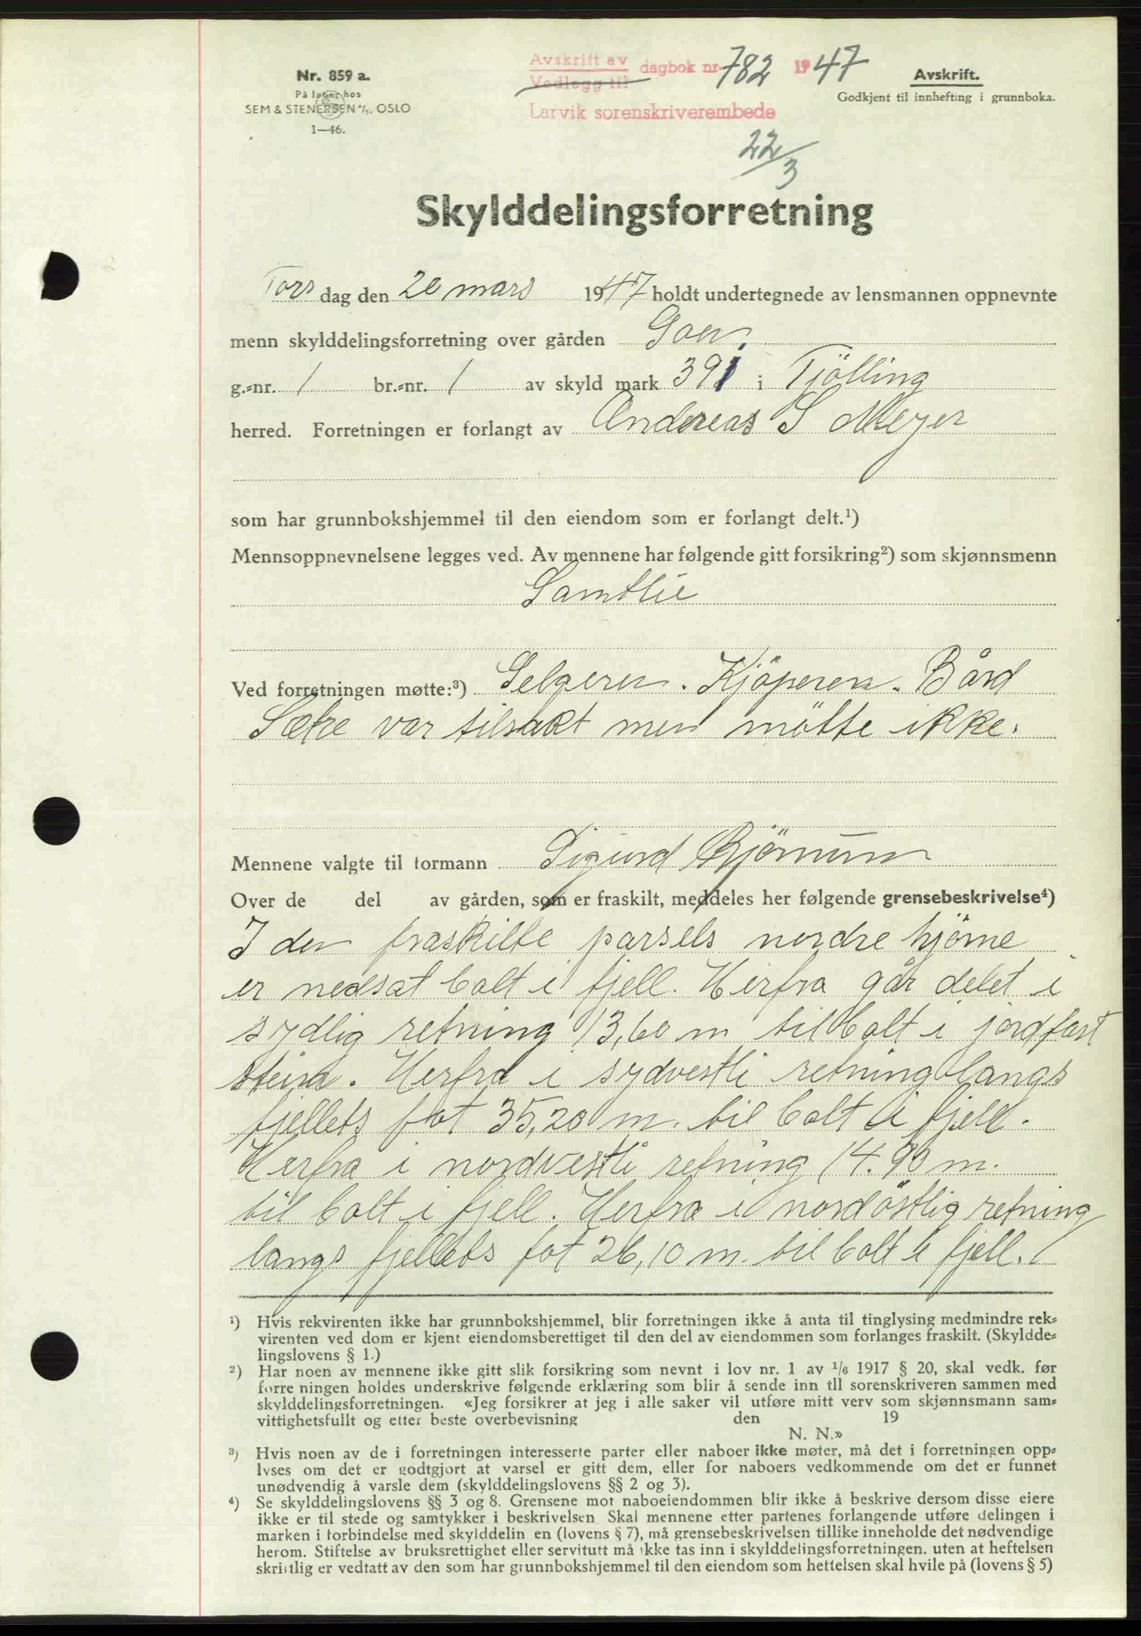 Nr. 859 a.
På lager hos
SEM & STENERSEN A/S, OSLO
1—46.
Avskrift av
Vedlegg til
dagbok nr 782 1947
Larvik sorenskriverembede
22/3
Avskrift.
Godkjent til innhefting i grunnboka.
Skylddelingsforretning
Tors dag den 20 mars 1947 holdt undertegnede av lensmannen oppnevnte
menn skylddelingsforretning over gården
g.-nr. 1 br.-nr. 1 av skyld mark 391 i Tjölling
herred. Forretningen er forlangt av Andreas S Meyer
som har grunnbokshjemmel til den eiendom som er forlangt delt.¹)
Mennsoppnevnelsene legges ved. Av mennene har følgende gitt forsikring²) som skjønnsmenn
Samtlie
Ved forretningen møtte:³) Selgeren. Kjöperen. Bård
var tilsakt men mötte ikke.
Mennene valgte til formann Sigurd
Over de del av gården, som er fraskilt, meddeles her følgende grensebeskrivelse⁴)
I den fraskilte parsels nordre hjörne
er nedsat bolt i fjell. Herfra går delet i
sydlig retning 13,60 m til bolt i jordfast
stein. Herfra i sydvestli retning langs
fjellets fot 35,20 m. til bolt i fjell.
Herfra i nordvestli retning 14.90 m.
til bolt i fjell. Herfra i nordöstlig retning
langs fjellets fot 26,10 m. til bolt i fjell.
¹) Hvis rekvirenten ikke har grunnbokshjemmel, blir forretningen ikke å anta til tinglysing medmindre rek-
virenten ved dom er kjent eiendomsberettiget til den del av eiendommen som forlanges fraskilt. (Skyldde-
lingslovens § 1.)
²) Har noen av mennene ikke gitt slik forsikring som nevnt i lov nr. 1 av 1/6 1917 § 20, skal vedk. før
forre ningen holdes underskrive følgende erklæring som blir å sende inn til sorenskriveren sammen med
skylddelingsforretningen. «Jeg forsikrer at jeg i alle saker vil utføre mitt verv som skjønnsmann sam-
vittighetsfullt og etter beste overbevisning den 19
N. N.»
³) Hvis noen av de i forretningen interesserte parter eller naboer ikke møter, må det i forretningen opp-
lyses om det er godtgjort at varsel er gitt dem, eller for naboers vedkommende om det er funnet
unødvendig å varsle dem (skylddelingslovens §§ 2 og 3).
⁴) Se skylddelingslovens §§ 3 og 8. Grensene mot naboeiendommen blir ikke å beskrive dersom disse eiere
ikke er til stede og samtykker i beskrivelsen Skal mennene etter partenes forlangende utføre delingen i
marken i forbindelse med skylddelin en (lovens § 7), må grensebeskrivelsen tillike inneholde det nødvendige
herom. Stiftelse av bruksrettighet eller servitutt må ikke tas inn i skylddelingsforretningen, uten at heftelsen
skriftlig er vedtatt av den som har grunnbokshjemmel til den eiendom som heftelsen skal hvile på (lovens § 5)